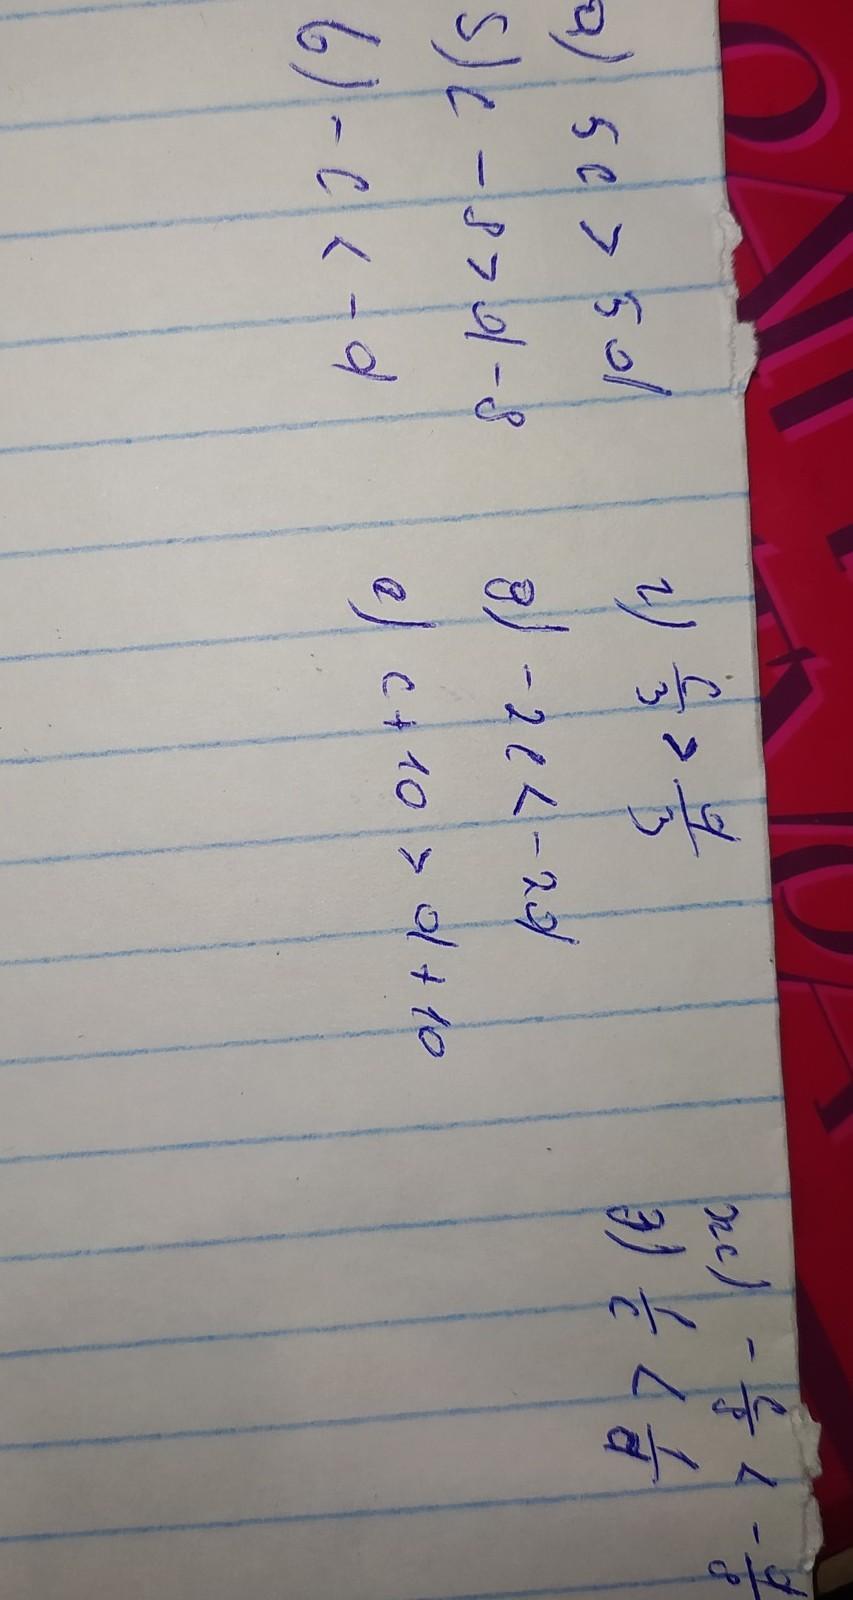 а) 5c > 5d
б) c - 8 > d - 8
в) -c < -d
г) c/3 > d/3
д) -2c < -2d
е) c + 10 > d + 10
ж) -c/8 < -d/8
з) 1/c < 1/d